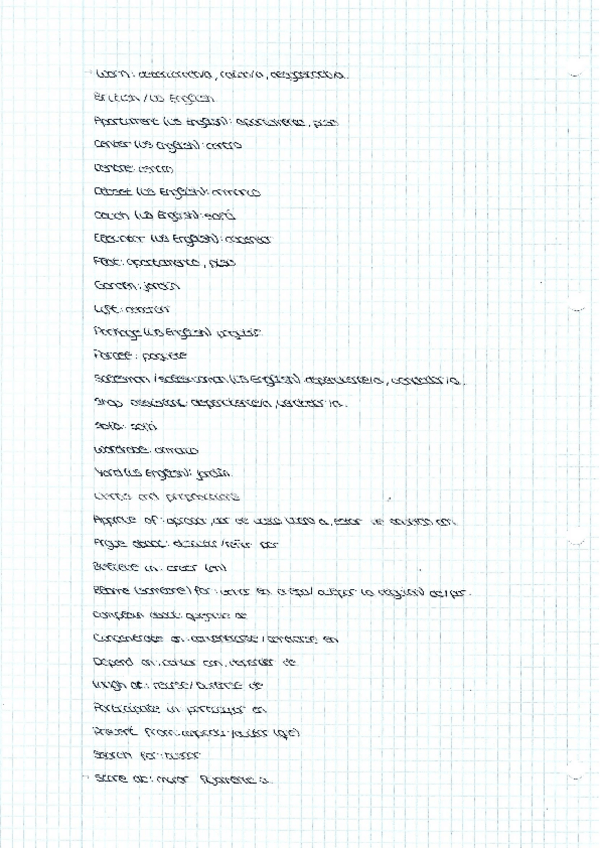 Worn: desgastado/a
British / US English
Apartment (US English): apartamento, piso
Center (US English): centro
Centre: centro
Closet (US English): armario
Couch (US English): sofá
Elevator (US English): ascensor
Flat: apartamento, piso
Garden: jardín
Lift: ascensor
Package (US English): paquete
Parcel: paquete
Salesman / saleswoman (US English): dependiente/a, vendedor/a.
Shop assistant: dependiente/a, vendedor/a.
Sofa: sofá
Wardrobe: armario
Yard (US English): jardín
Verbs and prepositions
Approve of: aprobar, dar de visto bueno a, estar de acuerdo con.
Argue about: discutir/reñir por
Believe in: creer (en)
Blame (someone) for: culpar (a alguien) de/por.
Complain about: quejarse de
Concentrate on: concentrarse/centrarse en
Depend on: contar con, depender de
Laugh at: reírse/burlarse de
Participate in: participar en
Prevent from: impedir/evitar (que)
Search for: buscar
Stare at: mirar fijamente a.